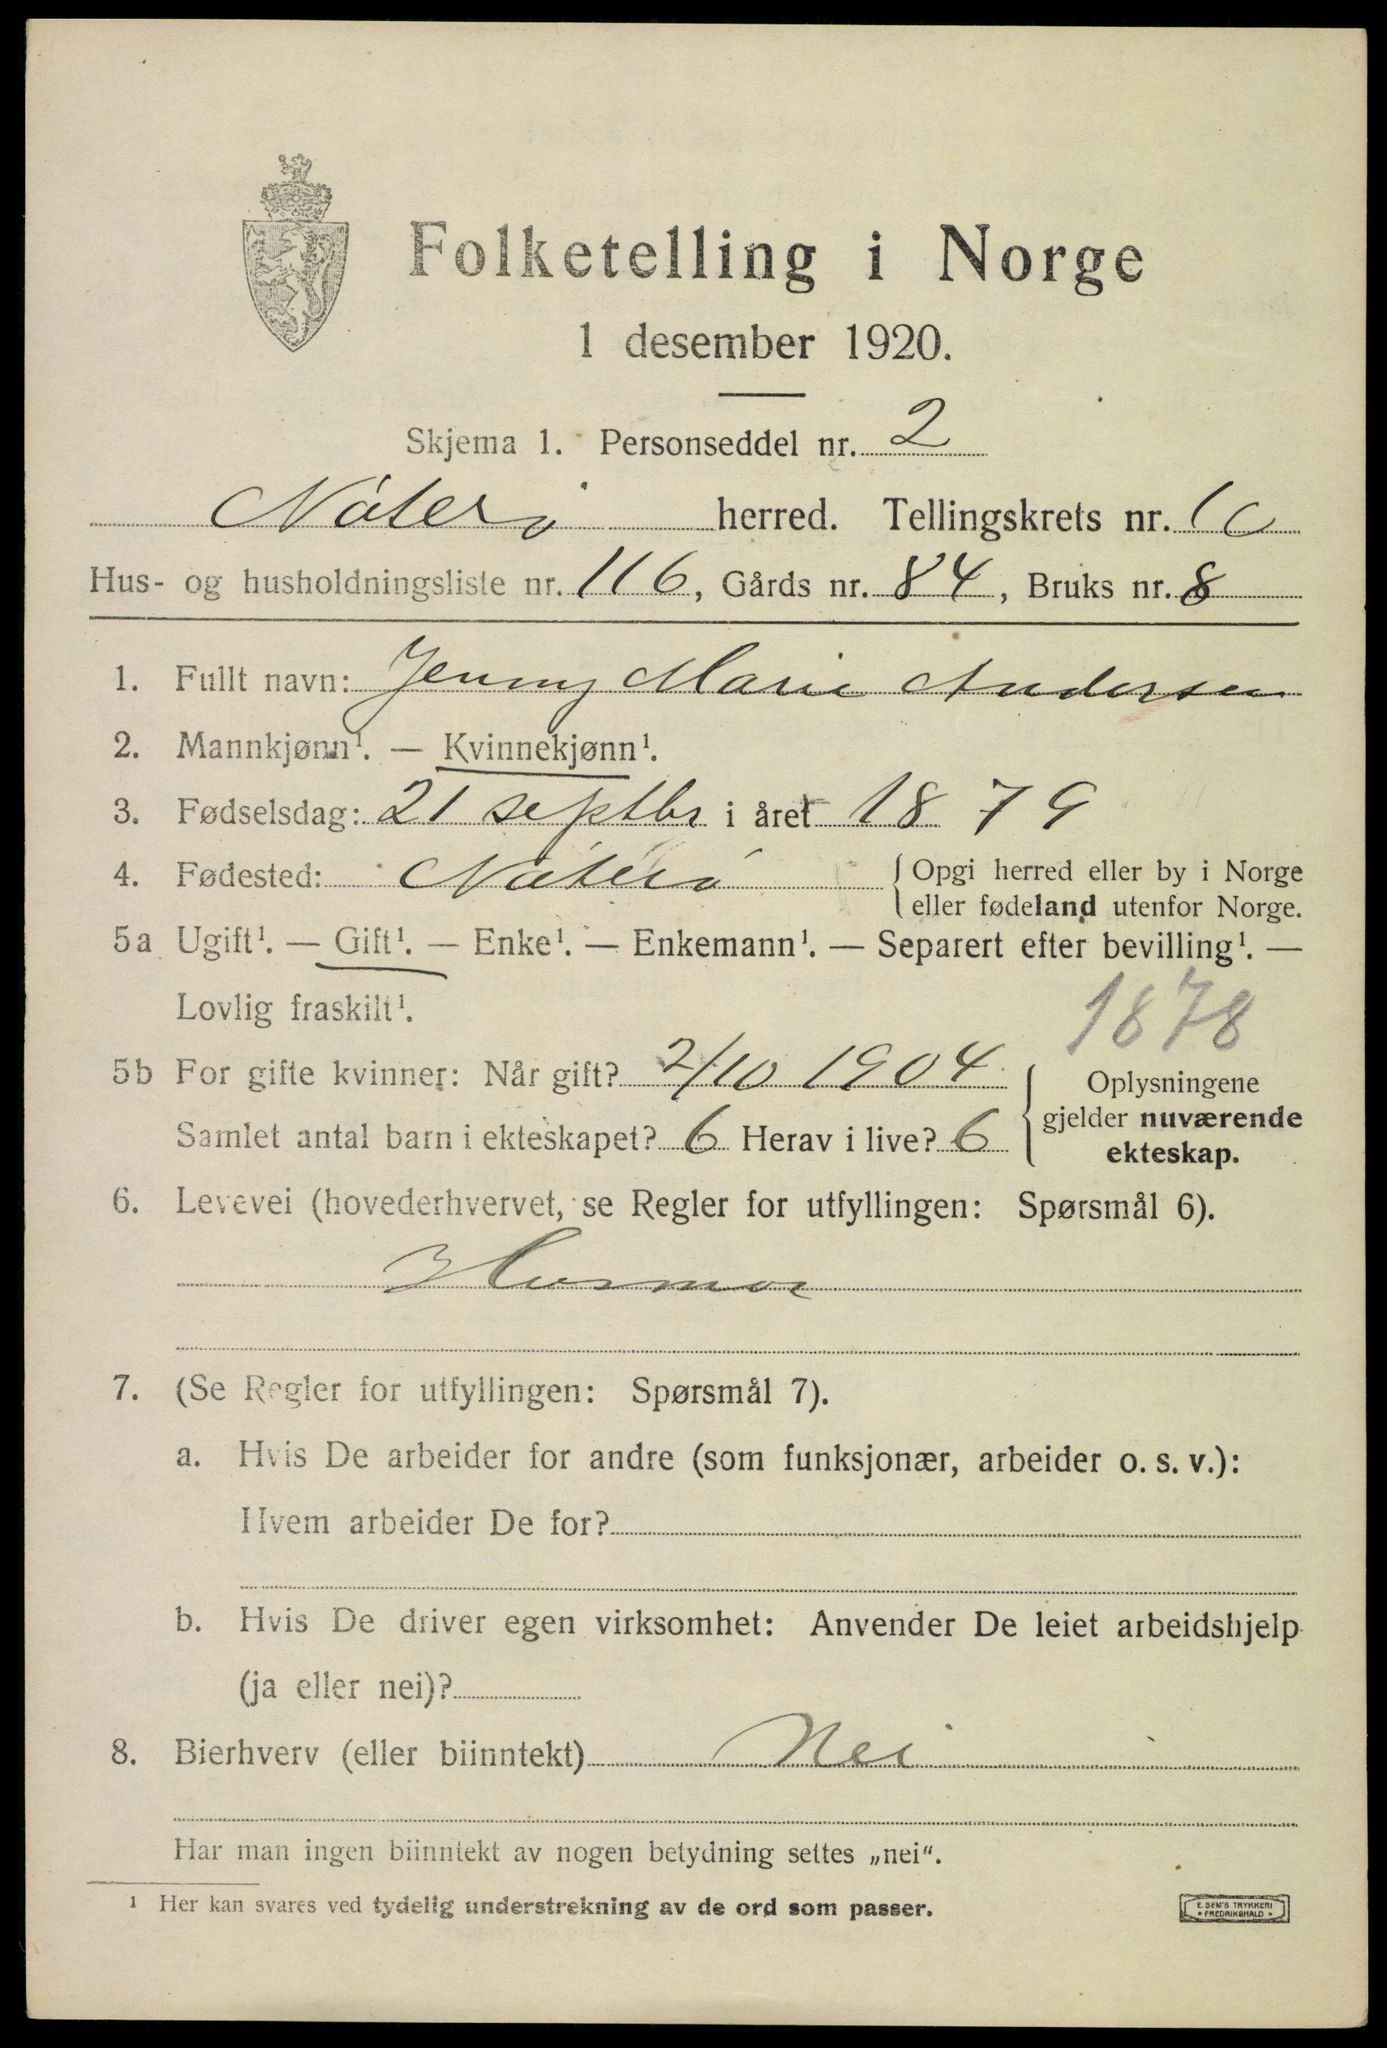 Folketelling i Norge
1 desember 1920.
Skjema 1. Personseddel nr. 2
Nøterø herred. Tellingskrets nr. 10
Hus- og husholdningsliste nr. 116, Gårds nr. 84, Bruks nr. 8
1. Fullt navn: Jenny Marie Andersen
2. Mannkjønn¹. — Kvinnekjønn¹.
3. Fødselsdag: 21 septbr i året 1879
4. Fødested: Nøterø { Opgi herred eller by i Norge
eller fødeland utenfor Norge.
5a Ugift¹. — Gift¹. — Enke¹. — Enkemann¹. — Separert efter bevilling¹. —
Lovlig fraskilt¹.
1878
5b For gifte kvinner: Når gift? 2/10 1904
Samlet antal barn i ekteskapet? 6 Herav i live? 6
{ Oplysningene
gjelder nuværende
ekteskap.
6. Levevei (hovederhvervet, se Regler for utfyllingen: Spørsmål 6).
Husmor
7. (Se Regler for utfyllingen: Spørsmål 7).
a. Hvis De arbeider for andre (som funksjonær, arbeider o. s. v.):
Hvem arbeider De for?
b. Hvis De driver egen virksomhet: Anvender De leiet arbeidshjelp
(ja eller nei)?
8. Bierhverv (eller biinntekt) Nei
Har man ingen biinntekt av nogen betydning settes „nei“.
¹ Her kan svares ved tydelig understrekning av de ord som passer.
E. SEM'S TRYKKERI
* FREDRIKSHALD *